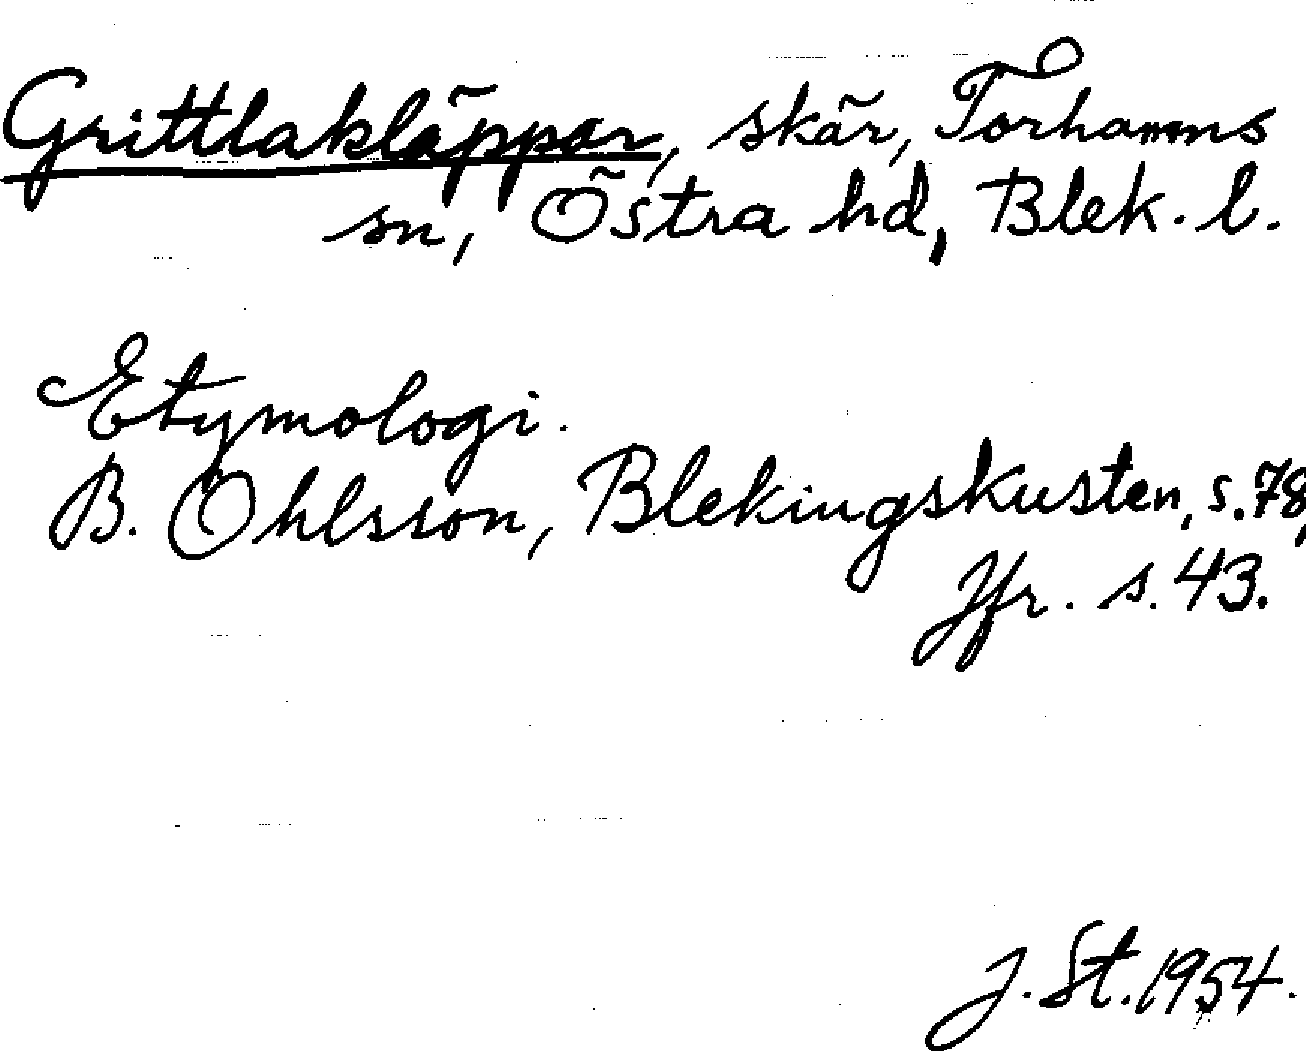 Grittlakläppar, skär, Torhamns
sn, Östra hd, Blek. l.
Etymologi.
B. Ohlsson, Blekingskusten, s. 78,
Jfr. s. 43.
J. St. 1954.